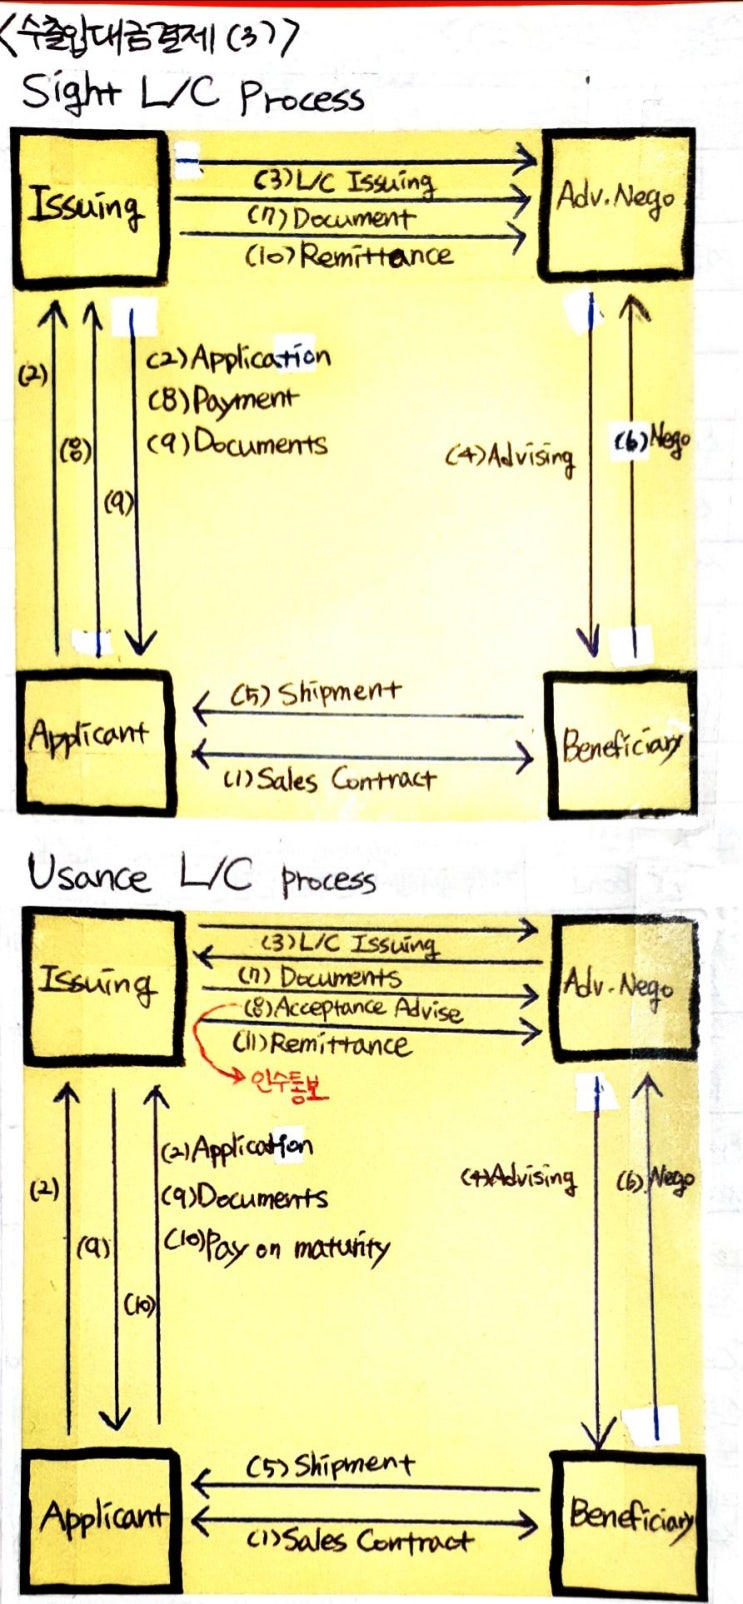 <수출입대금결제 (3)>
Sight L/C Process
Issuing
(3) L/C Issuing
(7) Document
(10) Remittance
Adv. Nego
(2)
(8)
(9)
(2) Application
(8) Payment
(9) Documents
(4) Advising
(6) Nego
Applicant
(5) Shipment
(1) Sales Contract
Beneficiary
Usance L/C process
Issuing
(3) L/C Issuing
(7) Documents
(8) Acceptance Advise
(11) Remittance
인수통보
Adv. Nego
(2)
(9)
(10)
(2) Application
(9) Documents
(10) Pay on maturity
(4) Advising
(6) Nego
Applicant
(5) Shipment
(1) Sales Contract
Beneficiary